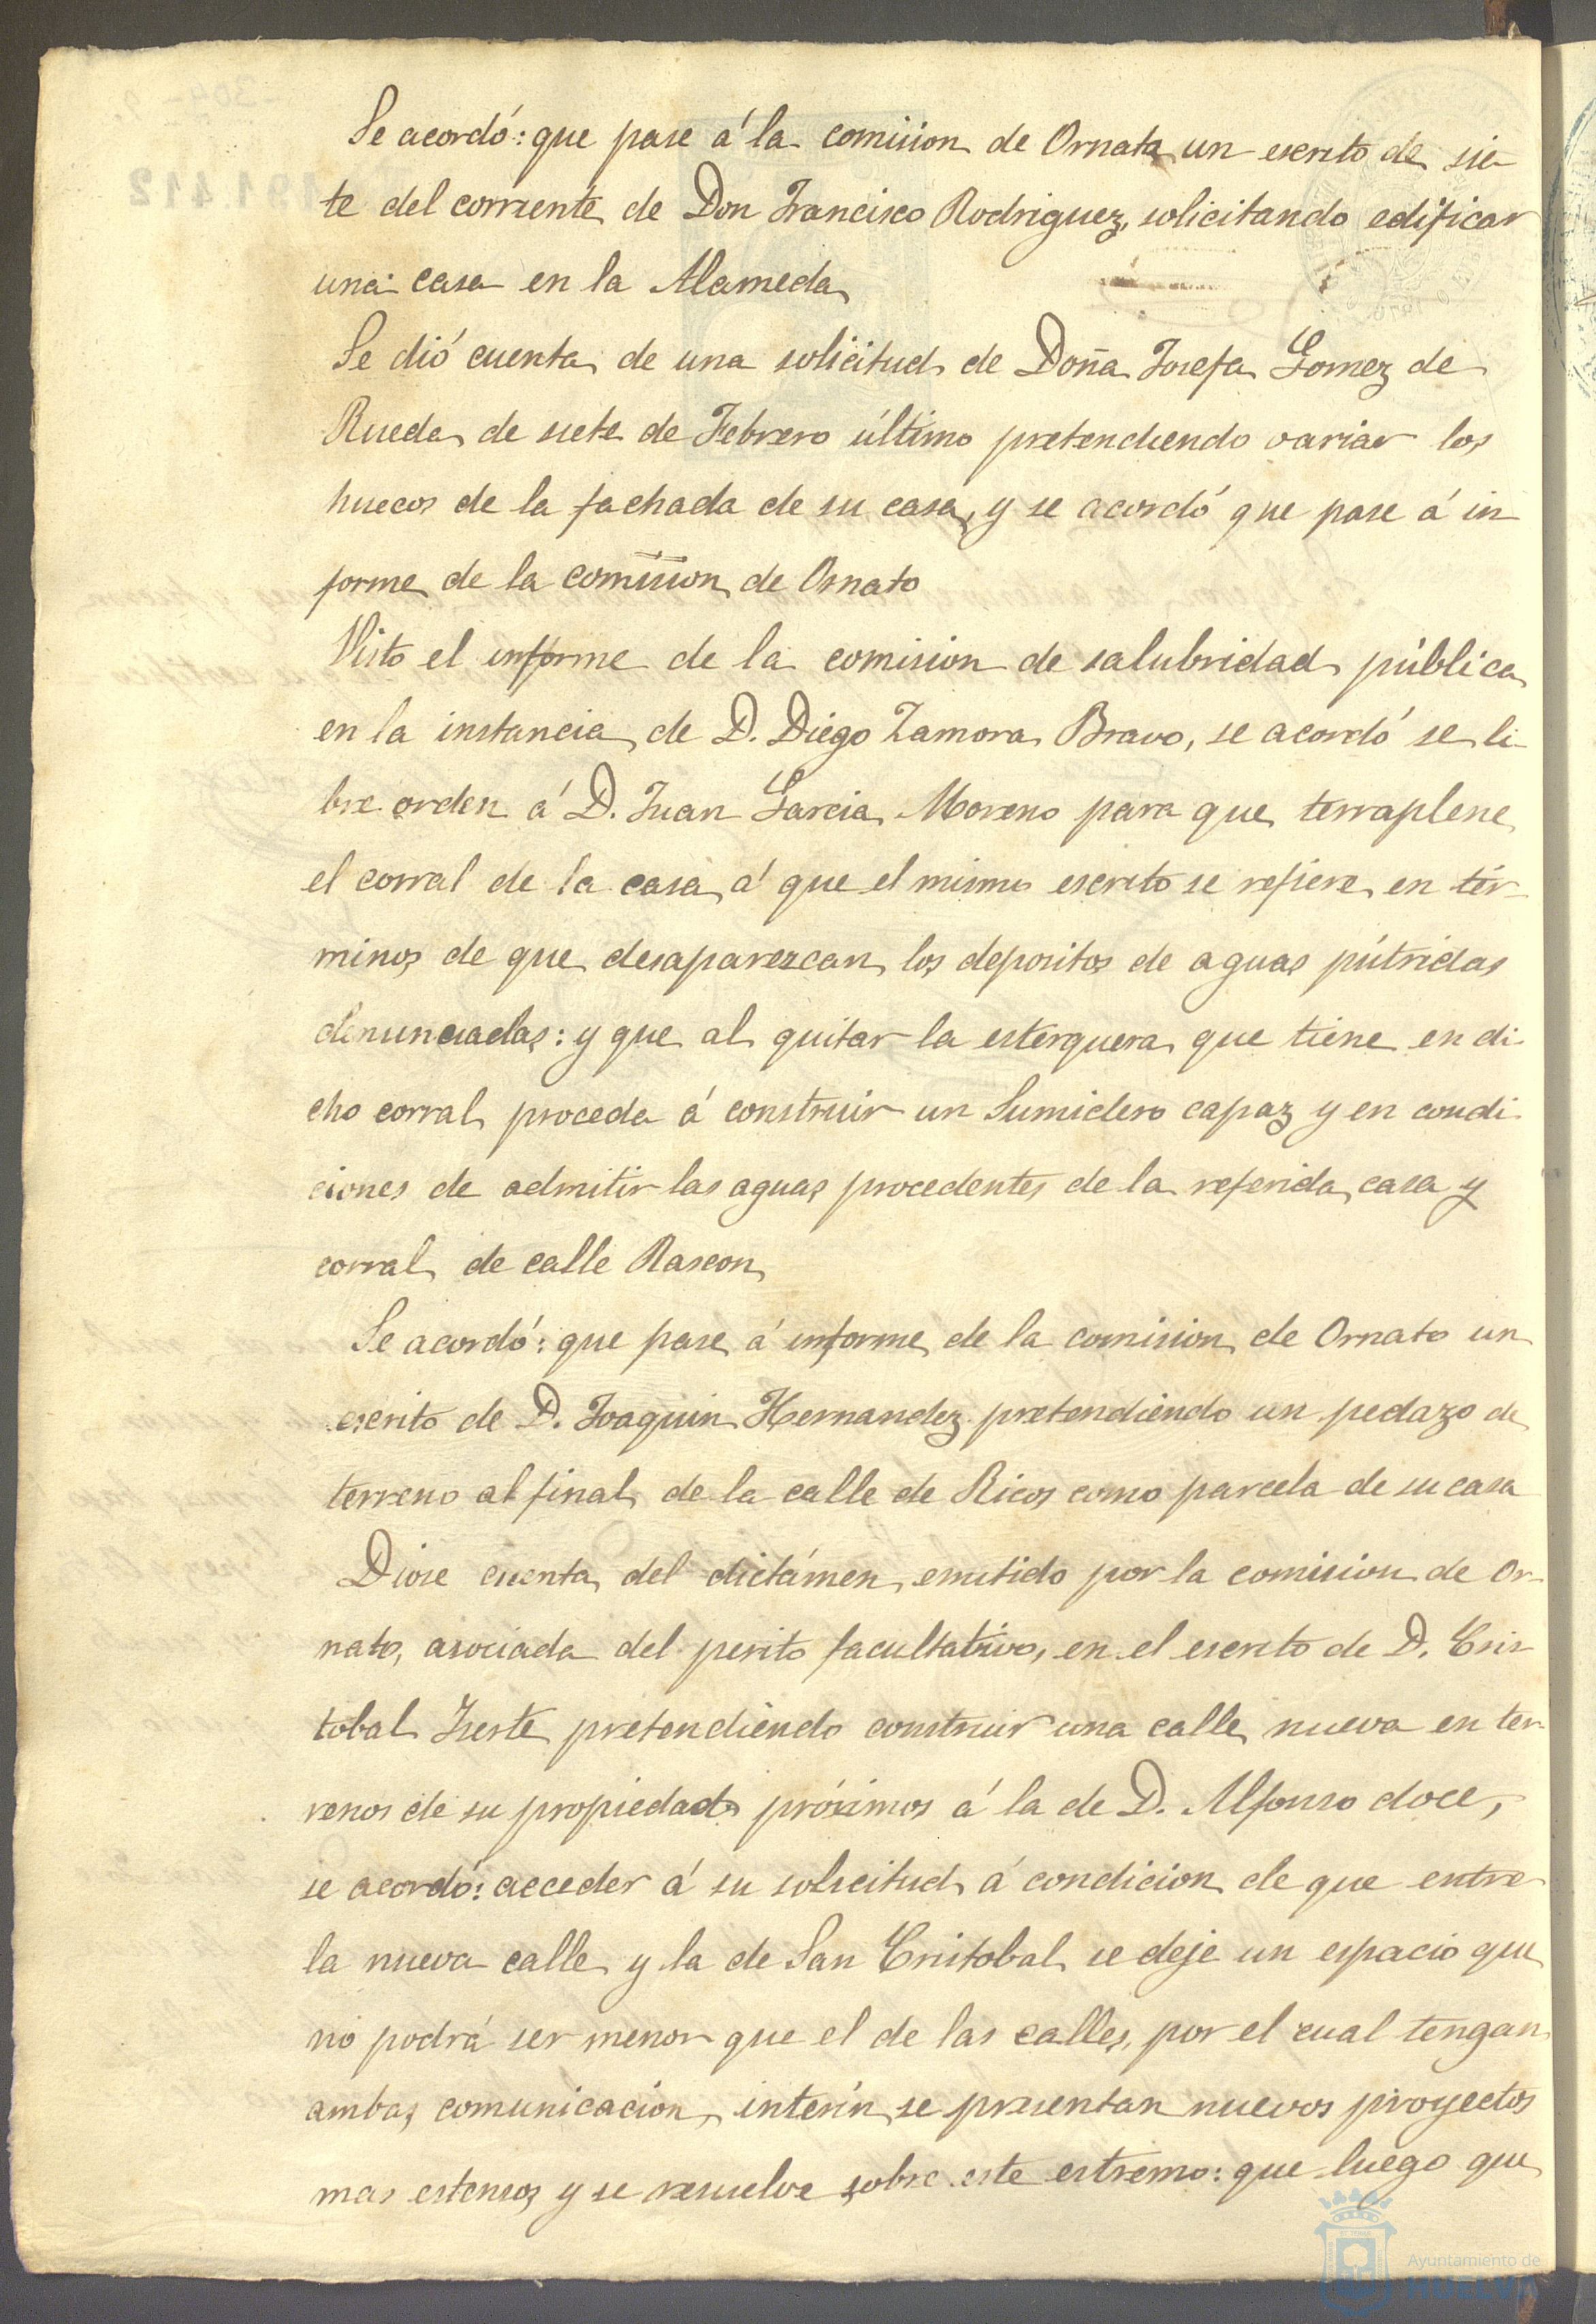 Se acordó: que pase á la comision de Ornato un escrito de sie-
te del corriente de Don Francisco Rodriguez, solicitando edificar
una casa en la Alameda
Se dió cuenta de una solicitud de Doña Josefa Gomez de
Rueda de siete de Febrero último pretendiendo variar los
huecos de la fachada de su casa, y se acordó que pase á in
forme de la comision de Ornato
Visto el informe de la comision de salubridad pública
en la instancia de D. Diego Zamora Bravo, se acordó se li-
bre orden á D. Juan Garcia Moreno para que terraplene
el corral de la casa á que el mismo escrito se refiere en tér-
minos de que desaparezcan los depositos de aguas pútridas
denunciadas: y que al quitar la esterquera que tiene en di-
cho corral proceda á construir un Sumidero capaz y en condi-
ciones de admitir las aguas procedentes de la referida casa y
corral de calle Rascon
Se acordó: que pase á informe de la comision de Ornato un
escrito de D. Joaquin Hernandez pretendiendo un pedazo de
terreno al final de la calle de Ricos como parcela de su casa
Diose cuenta del dictámen emitido por la comision de Or-
nato, asociada del perito facultativo, en el escrito de D. Cris-
tobal pretendiendo construir una calle nueva en ter-
renos de su propiedad próximos á la de D. Alfonso doce,
se acordó: acceder á su solicitud á condicion de que entre
la nueva calle y la de San Cristobal se deje un espacio que
no podrá ser menor que el de las calles, por el cual tengan
ambas comunicacion, interin se presentan nuevos proyectos
mas estensos y se resuelve sobre este estremo: que luego que
191.412
Ayuntamiento de
HUELVA